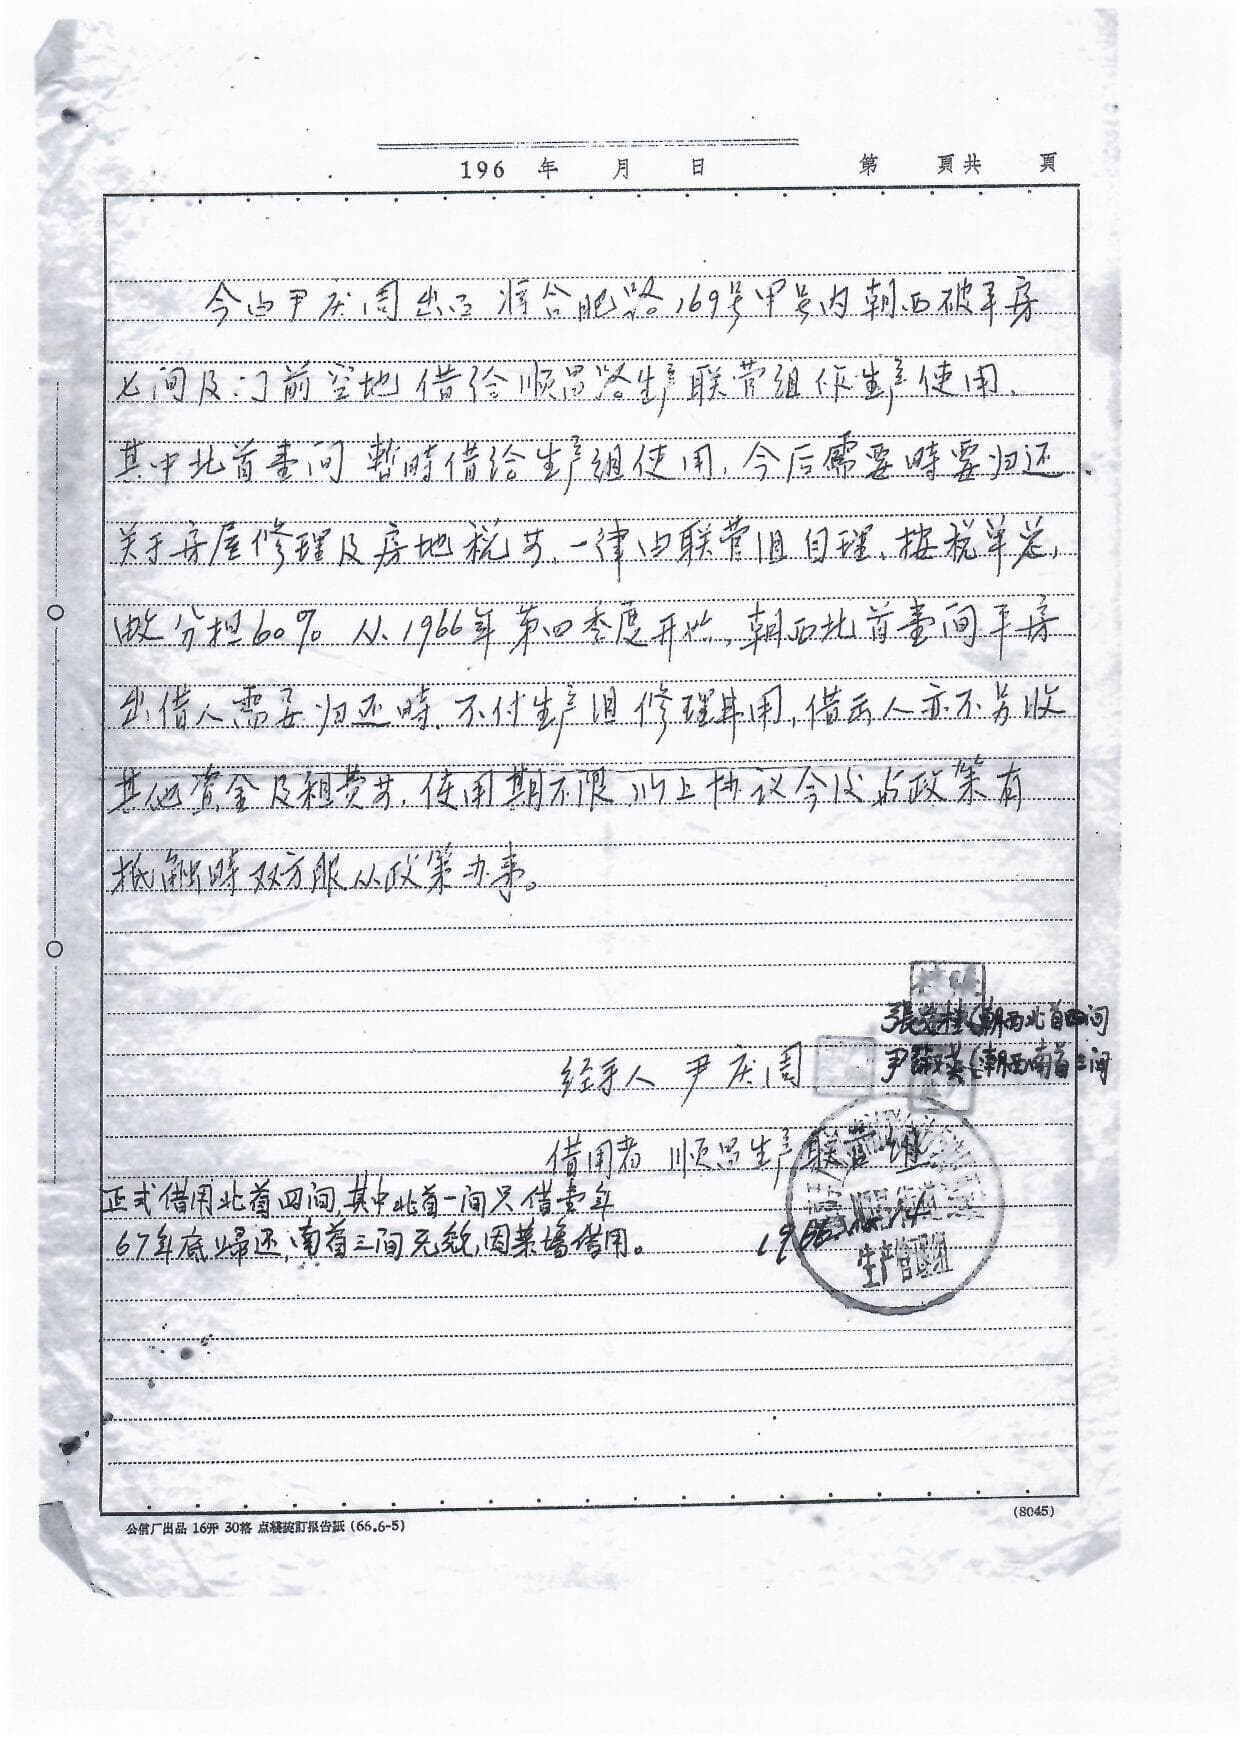 196 年 月 日 第 頁共 頁
今由尹庆周出面 将合肥路169号甲号内朝西破平房
七间及门前空地借给顺昌路生产联营组作生产使用.
其中北首壹间 暂時借给生产组使用,今后需要時要归还.
关于房屋修理及房地税等,一律由联营组自理,按税单
分担60% 从1966年第四季度开始,朝西北首壹间平房
出借人需要归还時.不付生产组修理费用,借出人亦不另收
其他资金及租费等,使用期不限,以上协议今后与政策有
抵触時双方服从政策办事。
張茂桂(朝西北首四间
经手人 尹庆周 尹 英(朝西南首三间
借用者 顺昌生产联营组
正式借用北首四间,其中北首一间只借壹年
67年底归还,南首三间无 ,因菜場借用。
1966.
生产管理组
公信厂出品 16开 30格 点綫装訂报告紙 (66.6-5)
(8045)